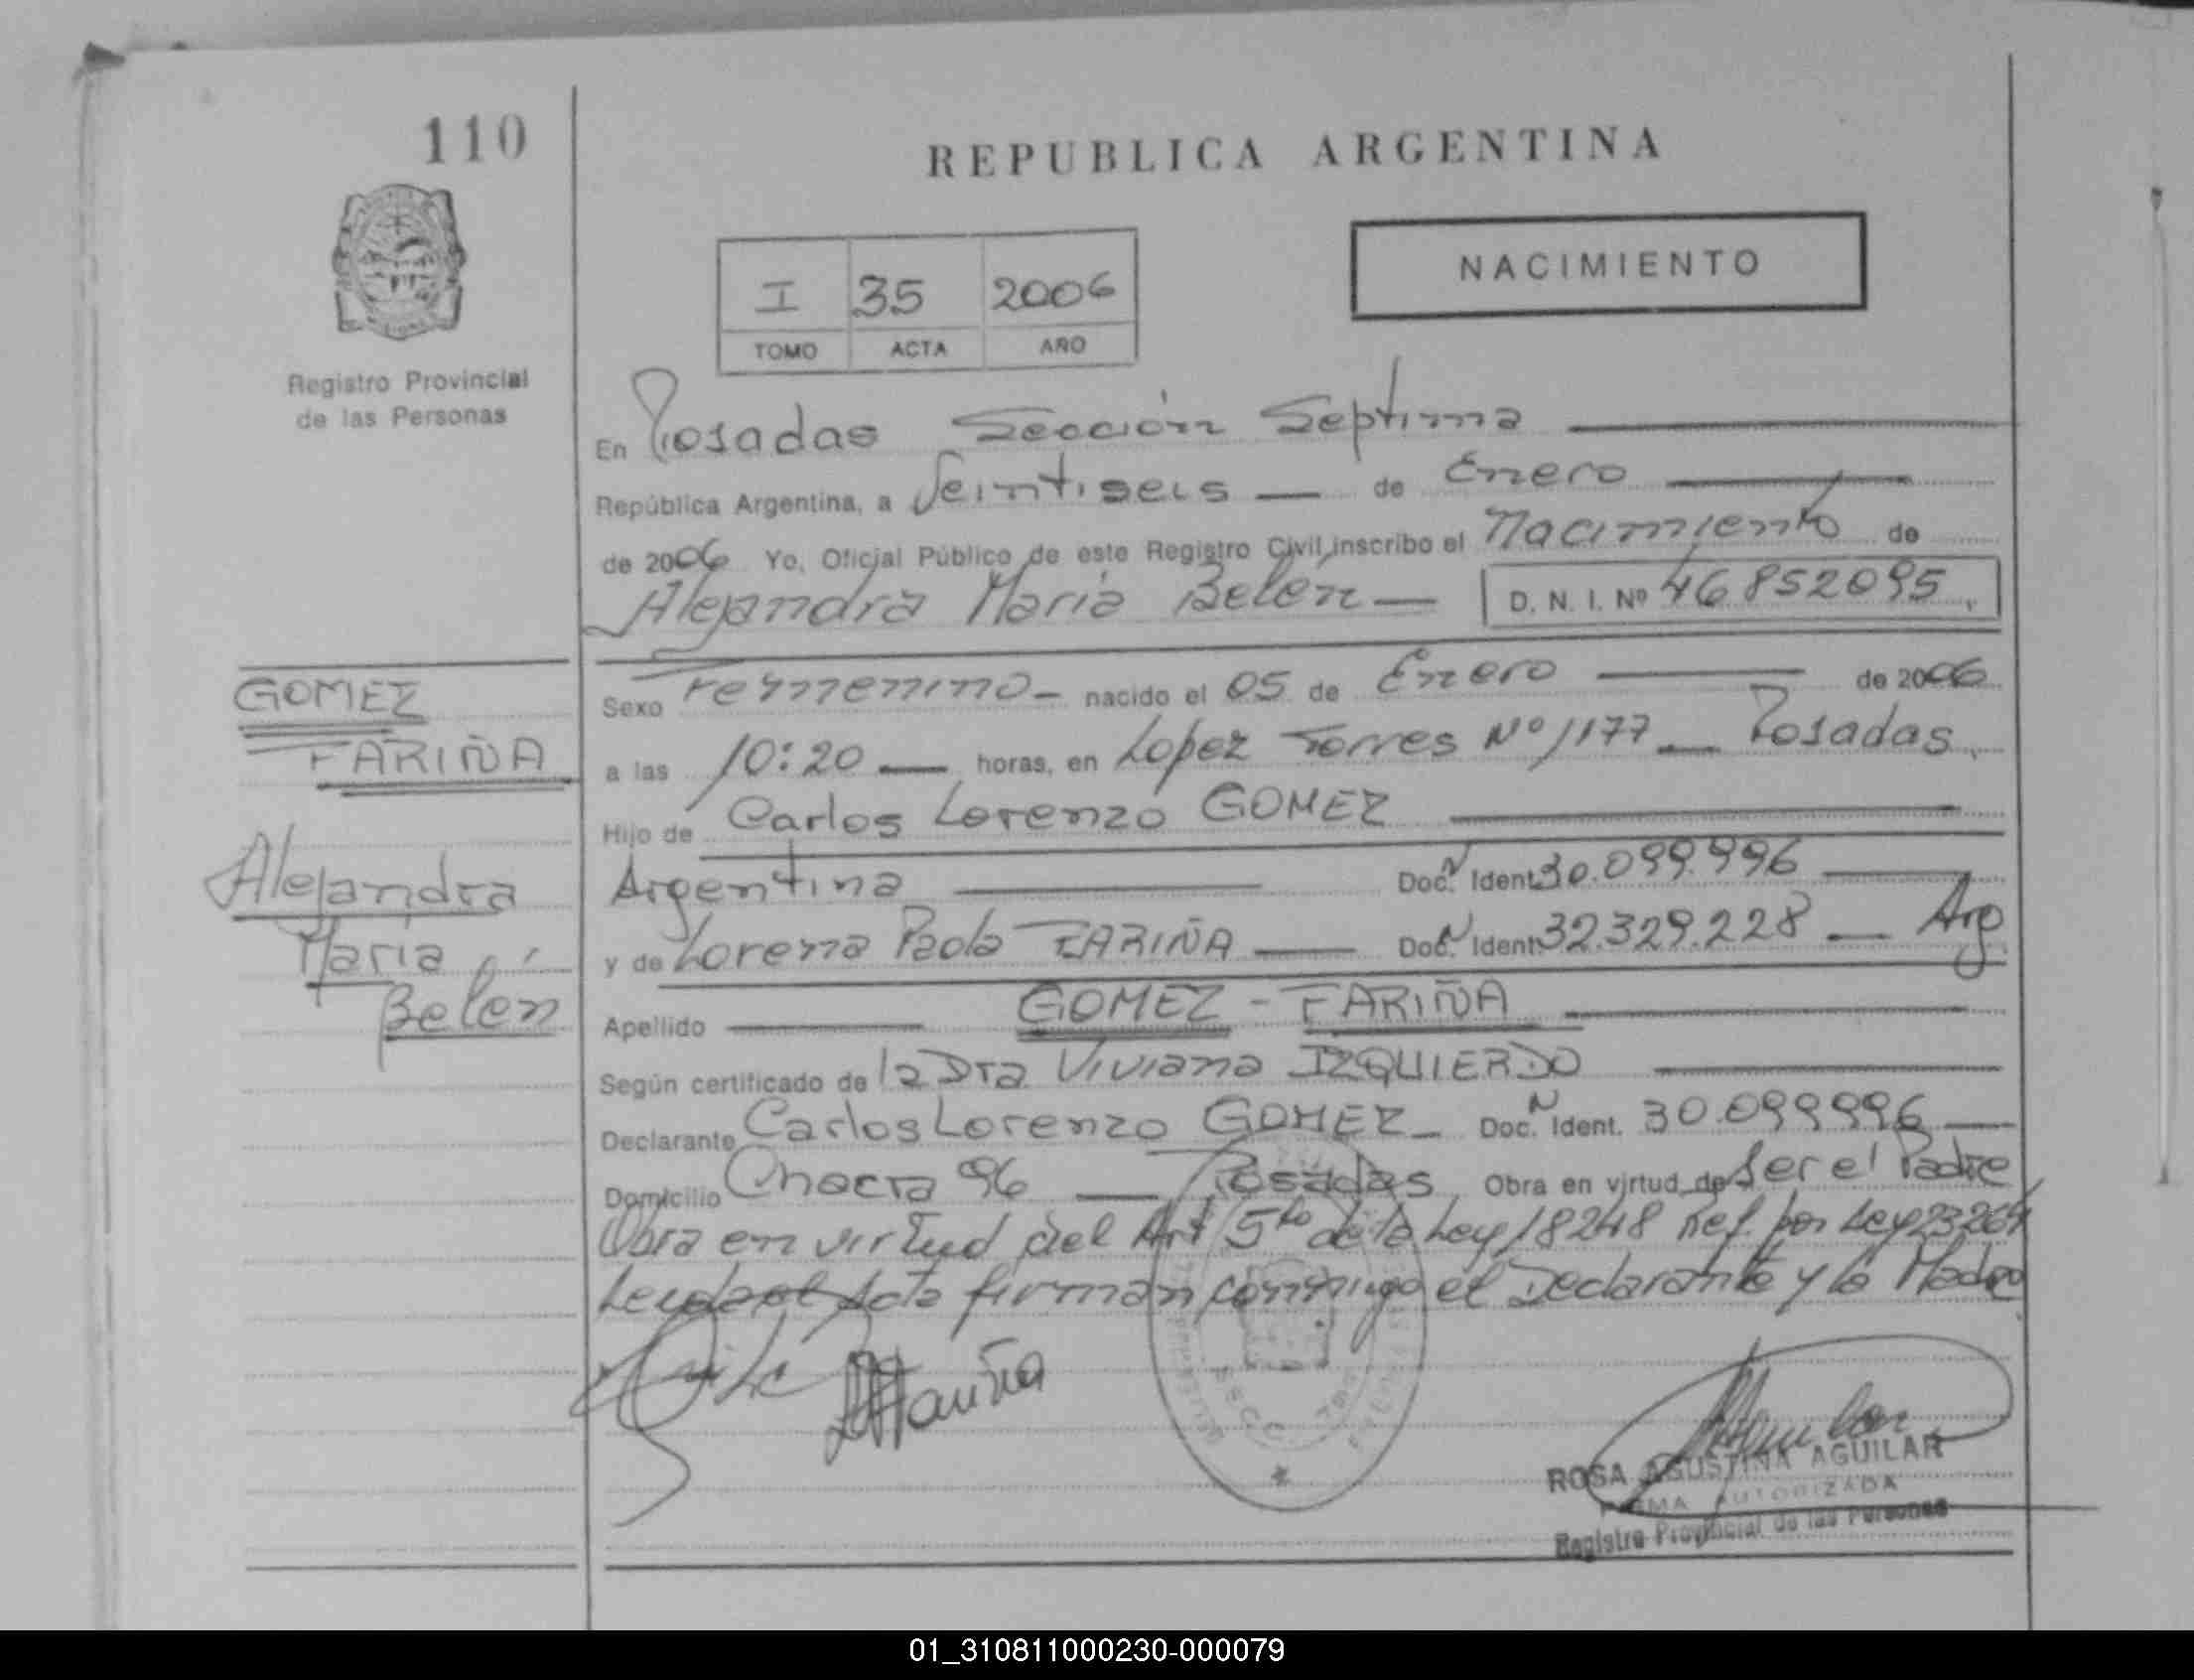 110
REPUBLICA ARGENTINA
NACIMIENTO
I 35 2006
TOMO ACTA AÑO
Registro Provincial
de las Personas
En Posadas Sección Septima
República Argentina, a Veintiseis de Enero
de 2006 Yo, Oficial Público de este Registro Civil, inscribo el Nacimiento de
Alejandra María Belen D. N. I. Nº 46852095
GOMEZ
FARIÑA
Alejandra
María
Belén
Sexo Femenino nacido el 05 de Enero de 2006
a las 10:20 horas, en Lopez Torres Nº 1177 Posadas
Hijo de Carlos Lorenzo GOMEZ
Argentina Doc. Ident. 30.099.996
y de Lorena Paola FARIÑA Doc. Ident. 32.329.228 Arg
Apellido GOMEZ - FARIÑA
Según certificado de la Dra Viviana IZQUIERDO
Declarante Carlos Lorenzo GOMEZ Doc. Ident. 30.099996
Domicilio Chacra 96 Posadas Obra en virtud de Ser el Padre
Obra en virtud del Art 5to de la Ley 18248 Ref. por Ley 23264
Leyda el Acta firman conmigo el Declarante y la Madre
Fariña
SECC 7ma
ROSA AGUSTINA AGUILAR
FIRMA AUTORIZADA
Registro Provincial de las Personas
01_310811000230-000079